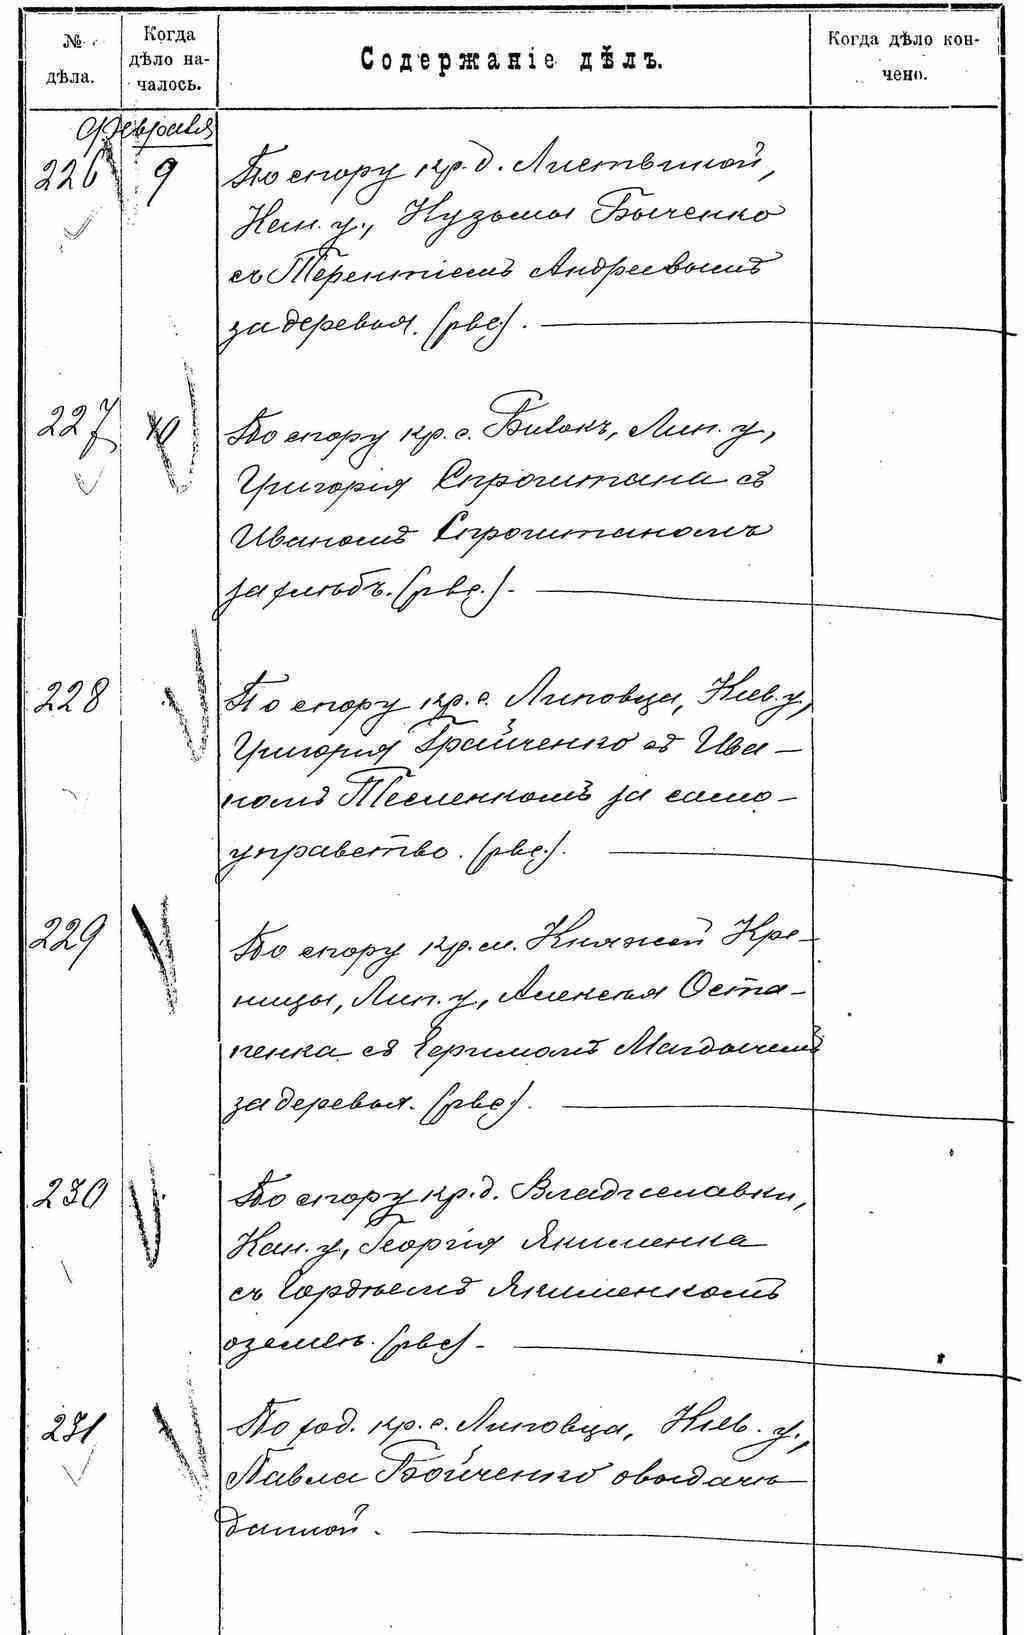 № дѣла.
Когда дѣло началось.
Содержаніе дѣлъ.
Когда дѣло кончено.
Февраля
226 9 По спору кр. д. Листвиной,
Кан. у., Кузьмы Быченко
съ Терентіемъ Андреевымъ
за деревья. (рвс.).
227 10 По спору кр. с. Лип. у.,
Григорія съ
Иваномъ
за хлѣбъ. (рвс.).
228 По спору кр. с. Липовца, Кіев. у.,
Григорія Грайченко съ Ива-
номъ Тесленкомъ за само-
управство. (рвс.).
229 По спору кр. м. Княжей Кри-
ницы, Лип. у., Алексѣя Оста-
пенка съ
за деревья. (рвс.).
230 По спору кр. д. Владиславки,
Кан. у., Георгія Якименка
съ Гордѣемъ Якименкомъ
о землѣ. (рвс.).
231 По ход. кр. с. Липовца, Кіев. у.,
Павла Бойченко о выдачѣ
данной.